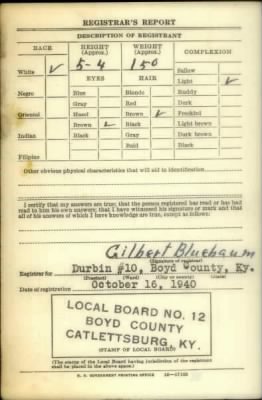 REGISTRAR'S REPORT
DESCRIPTION OF REGISTRANT
RACE HEIGHT (Approx.) WEIGHT (Approx.) COMPLEXION
White ✓ 5-4 150 Sallow
EYES HAIR Light ✓
Negro Blue Blonde Ruddy
Gray Red Dark
Oriental Hazel Brown ✓ Freckled
Brown ✓ Black Light brown
Indian Black Gray Dark brown
Bald Black
Filipino
Other obvious physical characteristics that will aid in identification
I certify that my answers are true; that the person registered has read or has had
read to him his own answers; that I have witnessed his signature or mark and that
all of his answers of which I have knowledge are true, except as follows:
Gilbert Bluebaum
(Signature of registrar)
Registrar for Durbin #10, Boyd County, Ky.
(Precinct) (Ward) (City or county) (State)
Date of registration October 16, 1940
LOCAL BOARD NO. 12
BOYD COUNTY
CATLETTSBURG, KY.
(STAMP OF LOCAL BOARD)
(The stamp of the Local Board having jurisdiction of the registrant
shall be placed in the above space.)
U. S. GOVERNMENT PRINTING OFFICE